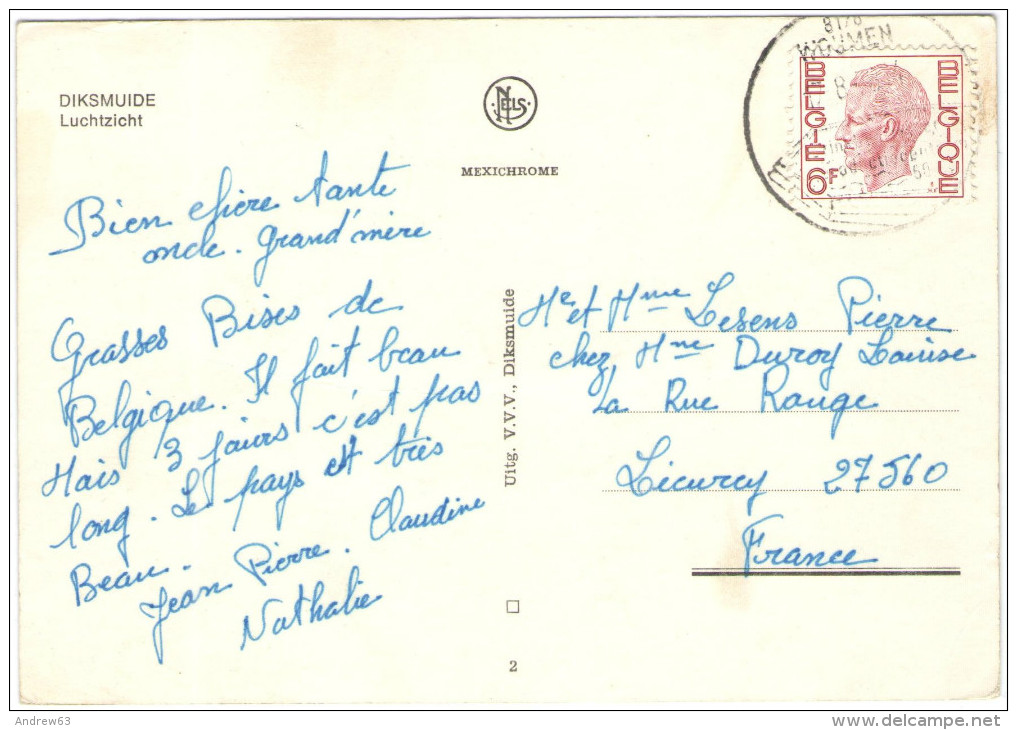 DIKSMUIDE
Luchtzicht
NELS
MEXICHROME
8178
WOUMEN
BELGIE
BELGIQUE
6F
Bien chère tante
oncle. grand'mère
Grasses Bises de
Belgique. Il fait beau
Mais 3 jours c'est pas
long. Le pays est très
Beau.
Jean Pierre. Claudine
Nathalie
Uitg. V.V.V., Diksmuide
Mr et Mme Lesens Pierre
chez Mme Duroy Louise
La Rue Rouge
Lieurey 27560
France
2
Andrew63
delcampe.net